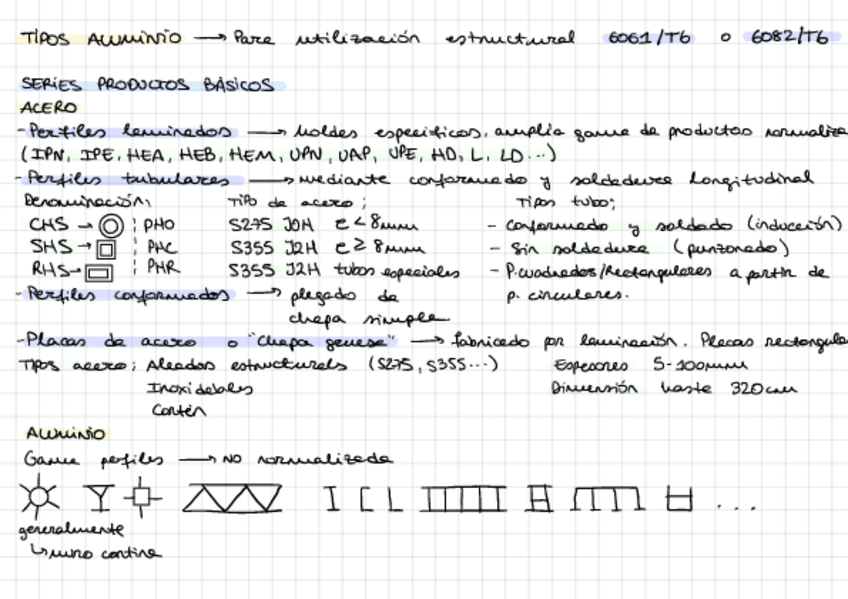 TIPOS ALUMINIO → Para utilización estructural 6061/T6 o 6082/T6
SERIES PRODUCTOS BÁSICOS
ACERO
-Perfiles laminados → moldes específicos, amplia gama de productos normaliza
(IPN, IPE, HEA, HEB, HEM, UPN, UAP, UPE, HD, L, LD...)
-Perfiles tubulares → mediante conformado y soldadura longitudinal
Denominación; Tipo de acero; Tipos tubo;
CHS → ¦ PHO S275 J0H e < 8mm - Conformado y soldado (inducción)
SHS → ¦ PHC S355 J2H e ≥ 8mm - Sin soldadura (punzonado)
RHS → ¦ PHR S355 J2H tubos especiales - P.cuadrados/Rectangulares a partir de
p. circulares.
-Perfiles conformados → plegado de
chapa simple
-Placas de acero o "chapa gruesa" → fabricado por laminación. Placas rectangula
Tipos acero; Aleados estructurals (S275, S355...) Espesores 5-100mm
Inoxidables Dimensión hasta 320cm
Corten
ALUMINIO
Gama perfiles → NO normalizada
...
generalmente
↳ muro cortina